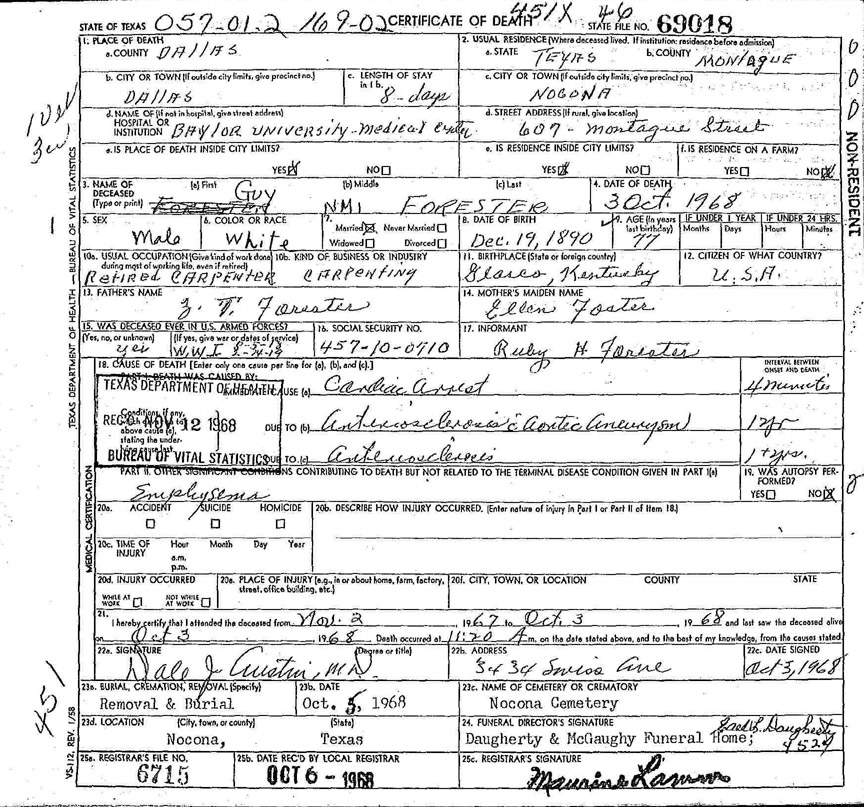 STATE OF TEXAS 057-01-2 169-02 CERTIFICATE OF DEATH 451X 46 STATE FILE NO. 69018
1. PLACE OF DEATH
a. COUNTY DALLAS
2. USUAL RESIDENCE (Where deceased lived. If institution: residence before admission)
a. STATE TEXAS b. COUNTY MONTAGUE
b. CITY OR TOWN (If outside city limits, give precinct no.)
DALLAS
c. LENGTH OF STAY in 1 b.
8-days
c. CITY OR TOWN (If outside city limits, give precinct no.)
NOCONA
d. NAME OF (If not in hospital, give street address)
HOSPITAL OR INSTITUTION BAYLOR UNIVERSITY-Medical Center
d. STREET ADDRESS (If rural, give location)
607- Montague Street
e. IS PLACE OF DEATH INSIDE CITY LIMITS?
YES☒ NO☐
e. IS RESIDENCE INSIDE CITY LIMITS?
YES☒ NO☐
f. IS RESIDENCE ON A FARM?
YES☐ NO☒
NON-RESIDENT
3. NAME OF DECEASED (Type or print)
(a) First (b) Middle (c) Last
Guy NMI FORESTER
4. DATE OF DEATH
3 Oct. 1968
5. SEX
Male
6. COLOR OR RACE
White
7.
Married☒ Never Married☐
Widowed☐ Divorced☐
8. DATE OF BIRTH
Dec. 19, 1890
9. AGE (In years last birthday)
77
IF UNDER 1 YEAR IF UNDER 24 HRS.
Months Days Hours Minutes
10a. USUAL OCCUPATION (Give kind of work done during most of working life, even if retired)
Retired CARPENTER
10b. KIND OF BUSINESS OR INDUSTRY
CARPENTING
11. BIRTHPLACE (State or foreign country)
Glasco, Kentucky
12. CITIZEN OF WHAT COUNTRY?
U.S.A.
13. FATHER'S NAME
Z. T. Forester
14. MOTHER'S MAIDEN NAME
Ellen Foster
15. WAS DECEASED EVER IN U.S. ARMED FORCES?
(Yes, no, or unknown) (If yes, give war or dates of service)
yes W.W.I
16. SOCIAL SECURITY NO.
457-10-0710
17. INFORMANT
Ruby H. Forester
18. CAUSE OF DEATH [Enter only one cause per line for (a), (b), and (c).]
INTERVAL BETWEEN ONSET AND DEATH
PART I. DEATH WAS CAUSED BY:
TEXAS DEPARTMENT OF HEALTH
IMMEDIATE CAUSE (a) Cardiac Arrest 4 minutes
REC'D NOV 12 1968
Conditions, if any,
above cause (a), stating the underlying cause last.
DUE TO (b) Arteriosclerosis c Aortic Aneurysm 1 yr
BUREAU OF VITAL STATISTICS
DUE TO (c) Arteriosclerosis 1+yrs.
PART II. OTHER SIGNIFICANT CONDITIONS CONTRIBUTING TO DEATH BUT NOT RELATED TO THE TERMINAL DISEASE CONDITION GIVEN IN PART I(a)
Emphysema
19. WAS AUTOPSY PERFORMED?
YES☐ NO☒
20a. ACCIDENT SUICIDE HOMICIDE
☐ ☐ ☐
20b. DESCRIBE HOW INJURY OCCURRED. (Enter nature of injury in Part I or Part II of Item 18.)
20c. TIME OF INJURY Hour Month Day Year
a.m.
p.m.
20d. INJURY OCCURRED
WHILE AT WORK ☐ NOT WHILE AT WORK ☐
20e. PLACE OF INJURY (e.g., in or about home, farm, factory, street, office building, etc.)
20f. CITY, TOWN, OR LOCATION COUNTY STATE
21.
I hereby certify that I attended the deceased from Nov. 2, 1967 to Oct. 3 1968 and last saw the deceased alive
on Oct 3 1968 Death occurred at 11:20 A m. on the date stated above, and to the best of my knowledge, from the causes stated.
22a. SIGNATURE (Degree or title)
Dale J Austin, MD
22b. ADDRESS
3434 Swiss Ave
22c. DATE SIGNED
Oct 3, 1968
23a. BURIAL, CREMATION, REMOVAL (Specify)
Removal & Burial
23b. DATE
Oct. 5, 1968
23c. NAME OF CEMETERY OR CREMATORY
Nocona Cemetery
23d. LOCATION (City, town, or county) (State)
Nocona, Texas
24. FUNERAL DIRECTOR'S SIGNATURE
Daugherty & McGaughy Funeral Home; Daugherty
4524
25a. REGISTRAR'S FILE NO.
6715
25b. DATE REC'D BY LOCAL REGISTRAR
OCT 6 - 1968
25c. REGISTRAR'S SIGNATURE
TEXAS DEPARTMENT OF HEALTH — BUREAU OF VITAL STATISTICS
MEDICAL CERTIFICATION
VS-112, REV. 1/58
451